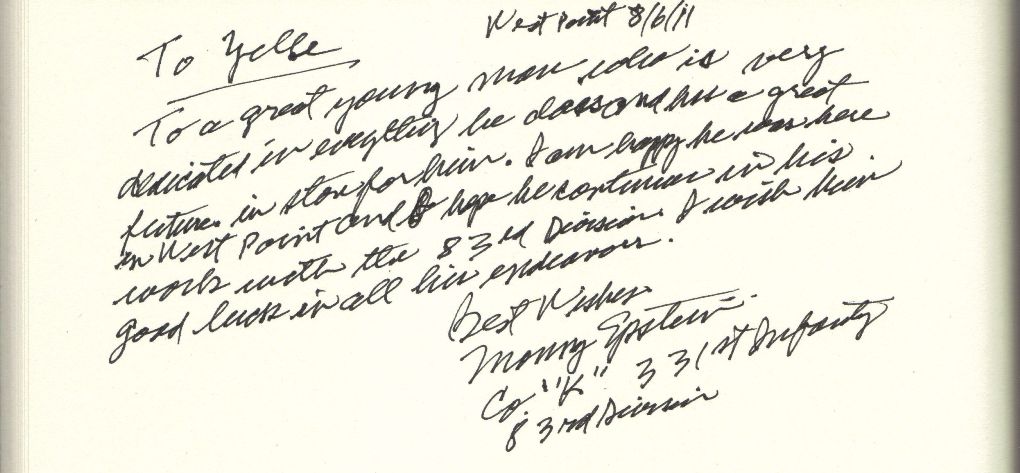 West Point 8/6/11
To Yelle
To a great young man who is very
dedicated in everything he does and has a great
future in store for him. I am happy he was here
in West Point and I hope he continues in his
work with the 83rd Division. I wish him
good luck in all his endeavors.
Best Wishes
Monny Epstein
Co. "K" 331st Infantry
83rd Division